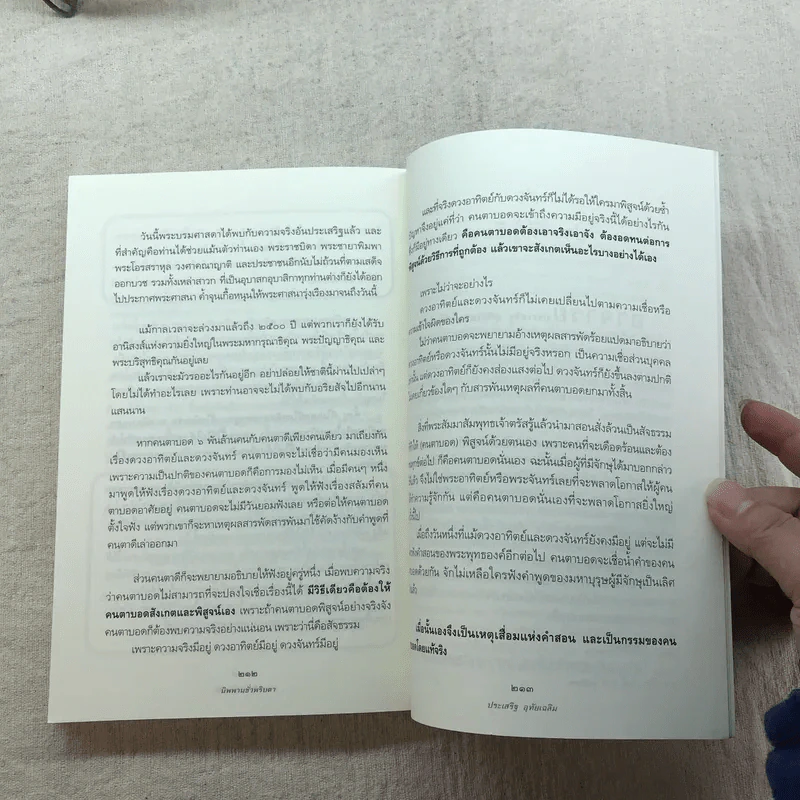 วันนี้พระบรมศาสดาได้พบกับความจริงอันประเสริฐแล้ว และ
ที่สำคัญคือท่านได้ช่วยแม้นตัวท่านเอง พระราชบิดา พระชายาพิมพา
พระโอรสราหุล วงศาคณาญาติ และประชาชนอีกนับไม่ถ้วนที่ตามเสด็จ
ออกบวช รวมทั้งเหล่าสาวก ที่เป็นอุบาสกอุบาสิกาทุกท่านต่างก็ยังได้ออก
ไปประกาศพระศาสนา ค้ำจุนเกื้อหนุนให้พระศาสนารุ่งเรืองมาจนถึงวันนี้
แม้กาลเวลาจะล่วงมาแล้วถึง ๒๕๐๐ ปี แต่พวกเราก็ยังได้รับ
อานิสงส์แห่งความยิ่งใหญ่ในพระมหากรุณาธิคุณ พระปัญญาธิคุณ และ
พระบริสุทธิคุณกันอยู่เลย
แล้วเราจะมัวรออะไรกันอยู่อีก อย่าปล่อยให้ชาตินี้ผ่านไปเปล่าๆ
โดยไม่ได้ทำอะไรเลย เพราะท่านอาจจะไม่ได้พบกับอริยสัจไปอีกนาน
แสนนาน
หากคนตาบอด ๖ พันล้านคนกับคนตาดีเพียงคนเดียว มาเถียงกัน
เรื่องดวงอาทิตย์และดวงจันทร์ คนตาบอดจะไม่เชื่อว่ามีคนมองเห็น
เพราะความเป็นปกติของคนตาบอดก็คือการมองไม่เห็น เมื่อมีคนๆ หนึ่ง
มาพูดให้ฟังเรื่องดวงอาทิตย์และดวงจันทร์ พูดให้ฟังเรื่องรสลัมที่คน
ตาบอดอาศัยอยู่ คนตาบอดจะไม่มีวันยอมฟังเลย หรือต่อให้คนตาบอด
ตั้งใจฟัง แต่พวกเขาก็จะหาเหตุผลสารพัดสารพันมาใช้คัดง้างกับคำพูดที่
คนตาดีเล่าออกมา
ส่วนคนตาดีก็จะพยายามอธิบายให้ฟังอยู่ครู่หนึ่ง เมื่อพบความจริง
ว่าคนตาบอดไม่สามารถที่จะปลงใจเชื่อเรื่องนี้ได้ มีวิธีเดียวคือต้องให้
คนตาบอดสังเกตและพิสูจน์เอง เพราะถ้าคนตาบอดพิสูจน์อย่างจริงจัง
คนตาบอดก็ต้องพบความจริงอย่างแน่นอน เพราะว่านี่คือสัจธรรม
เพราะความจริงมีอยู่ ดวงอาทิตย์มีอยู่ ดวงจันทร์มีอยู่
๒๑๒
นิพพานชั่วพริบตา
และที่จริงดวงอาทิตย์กับดวงจันทร์ก็ไม่ได้รอให้ใครมาพิสูจน์ด้วยซ้ำ
จึงอยู่แค่ที่ว่า คนตาบอดจะเข้าถึงความมีอยู่จริงนี้ได้อย่างไรกัน
ก็มีอยู่ทางเดียว คือคนตาบอดต้องเอาจริงเอาจัง ต้องอดทนต่อการ
พิสูจน์ด้วยวิธีการที่ถูกต้อง แล้วเขาจะสังเกตเห็นอะไรบางอย่างได้เอง
เพราะไม่ว่าจะอย่างไร
ดวงอาทิตย์และดวงจันทร์ก็ไม่เคยเปลี่ยนไปตามความเชื่อหรือ
ความเข้าใจผิดของใคร
ไม่ว่าคนตาบอดจะพยายามอ้างเหตุผลสารพัดร้อยแปดมาอธิบายว่า
ดวงอาทิตย์หรือดวงจันทร์นั้นไม่มีอยู่จริงหรอก เป็นความเชื่อส่วนบุคคล
เท่านั้น แต่ดวงอาทิตย์ก็ยังคงส่องแสงต่อไป ดวงจันทร์ก็ยังขึ้นลงตามปกติ
ไม่เคยเกี่ยวข้องใดๆ กับสารพันเหตุผลที่คนตาบอดยกมาทั้งสิ้น
สิ่งที่พระสัมมาสัมพุทธเจ้าตรัสรู้แล้วนำมาสอนสั่งล้วนเป็นสัจธรรม
(คนตาบอด) พิสูจน์ด้วยตนเอง เพราะคนที่จะเดือดร้อนและต้อง
ทุกข์ต่อไป ก็คือคนตาบอดนั่นเอง ฉะนั้นเมื่อผู้ที่มีจักษุได้มาบอกกล่าว
แล้ว จึงไม่ใช่พระอาทิตย์หรือพระจันทร์เลยที่จะพลาดโอกาสให้ผู้คน
ทำความรู้จักกัน แต่คือคนตาบอดนั่นเองที่จะพลาดโอกาสยิ่งใหญ่
นี้ไป
เมื่อถึงวันหนึ่งที่แม้ดวงอาทิตย์และดวงจันทร์ยังคงมีอยู่ แต่จะไม่มี
คำสอนของพระพุทธองค์อีกต่อไป คนตาบอดจะเชื่อน้ำคำของคน
ตาบอดด้วยกัน จักไม่เหลือใครฟังคำพูดของมหาบุรุษผู้มีจักษุเป็นเลิศ
แล้ว
เมื่อนั้นเองจึงเป็นเหตุเสื่อมแห่งคำสอน และเป็นกรรมของคน
ตาบอดโดยแท้จริง
๒๑๓
ประเสริฐ อุทัยเฉลิม